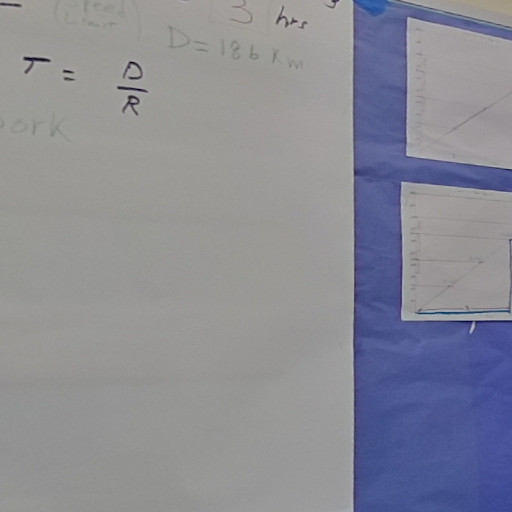 (Speed
Limit)
3 hrs
D = 186 Km
T = D/R
ork